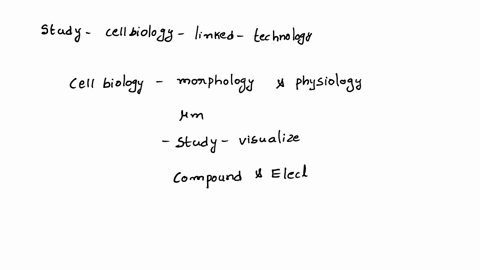 Study - cell biology - linked - technology
Cell biology - morphology & physiology
μm
- Study - visualize
Compound & Elect